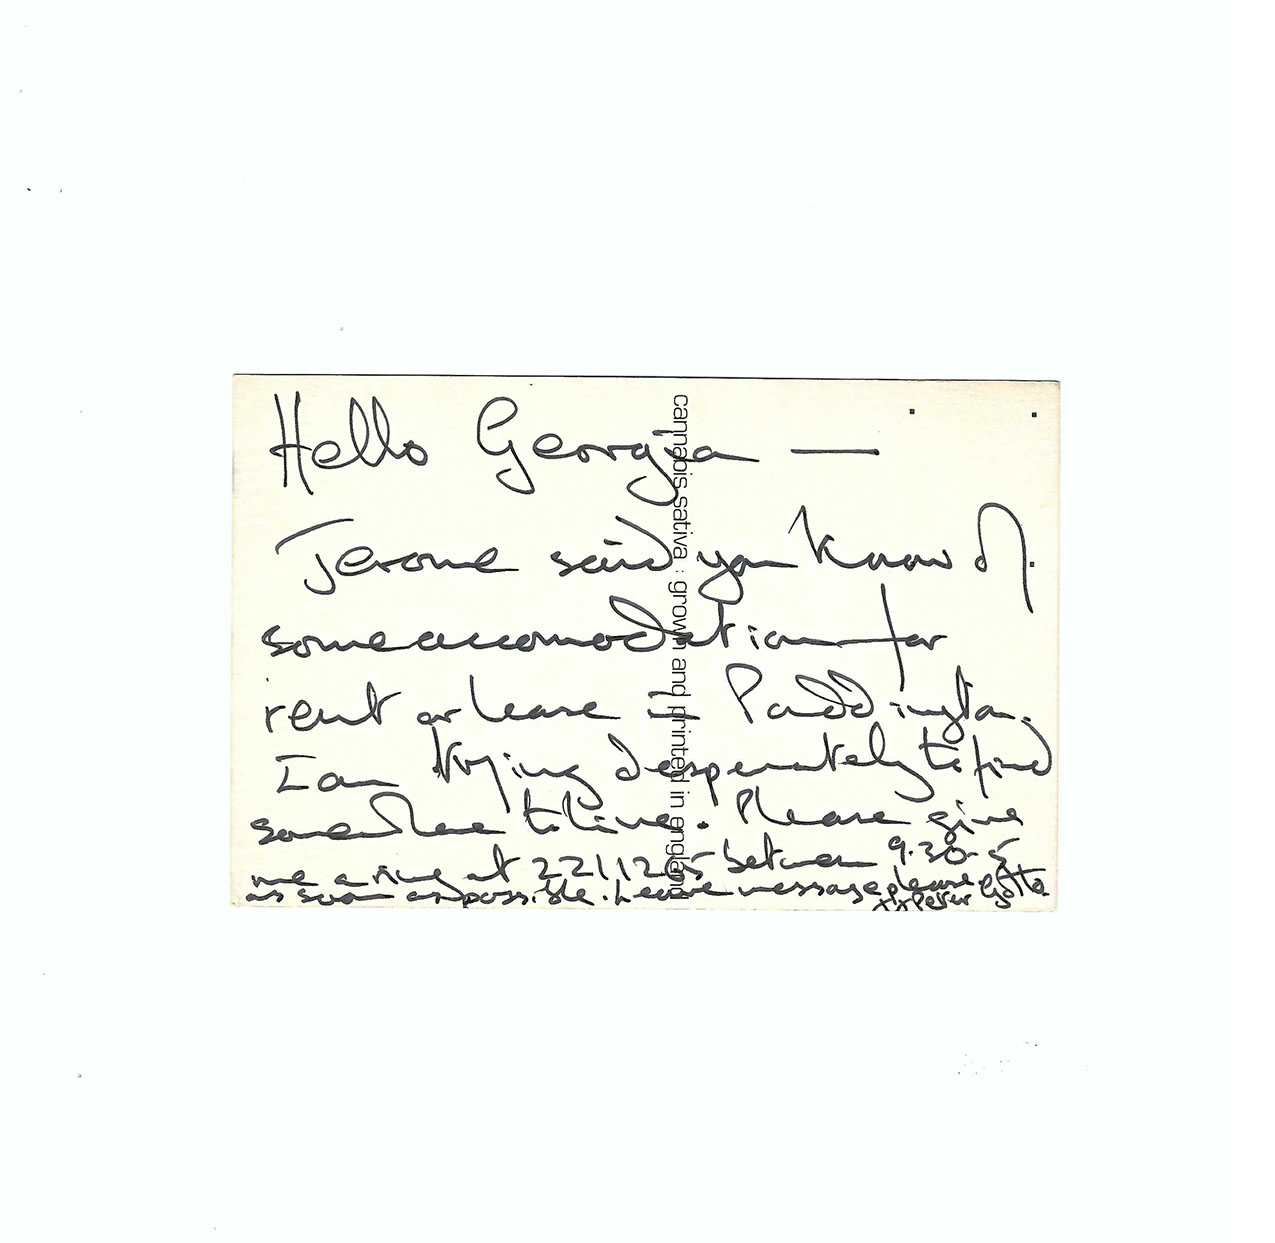 Hello Georgia —
Jerome said you know of
some accomodation for
rent or lease in Paddington.
I am trying desperately to find
somewhere to live. Please give
me a ring at 221125 between 9.30-5
as soon as possible. Leave message please
xx Peter
cannabis sativa : grown and printed in england